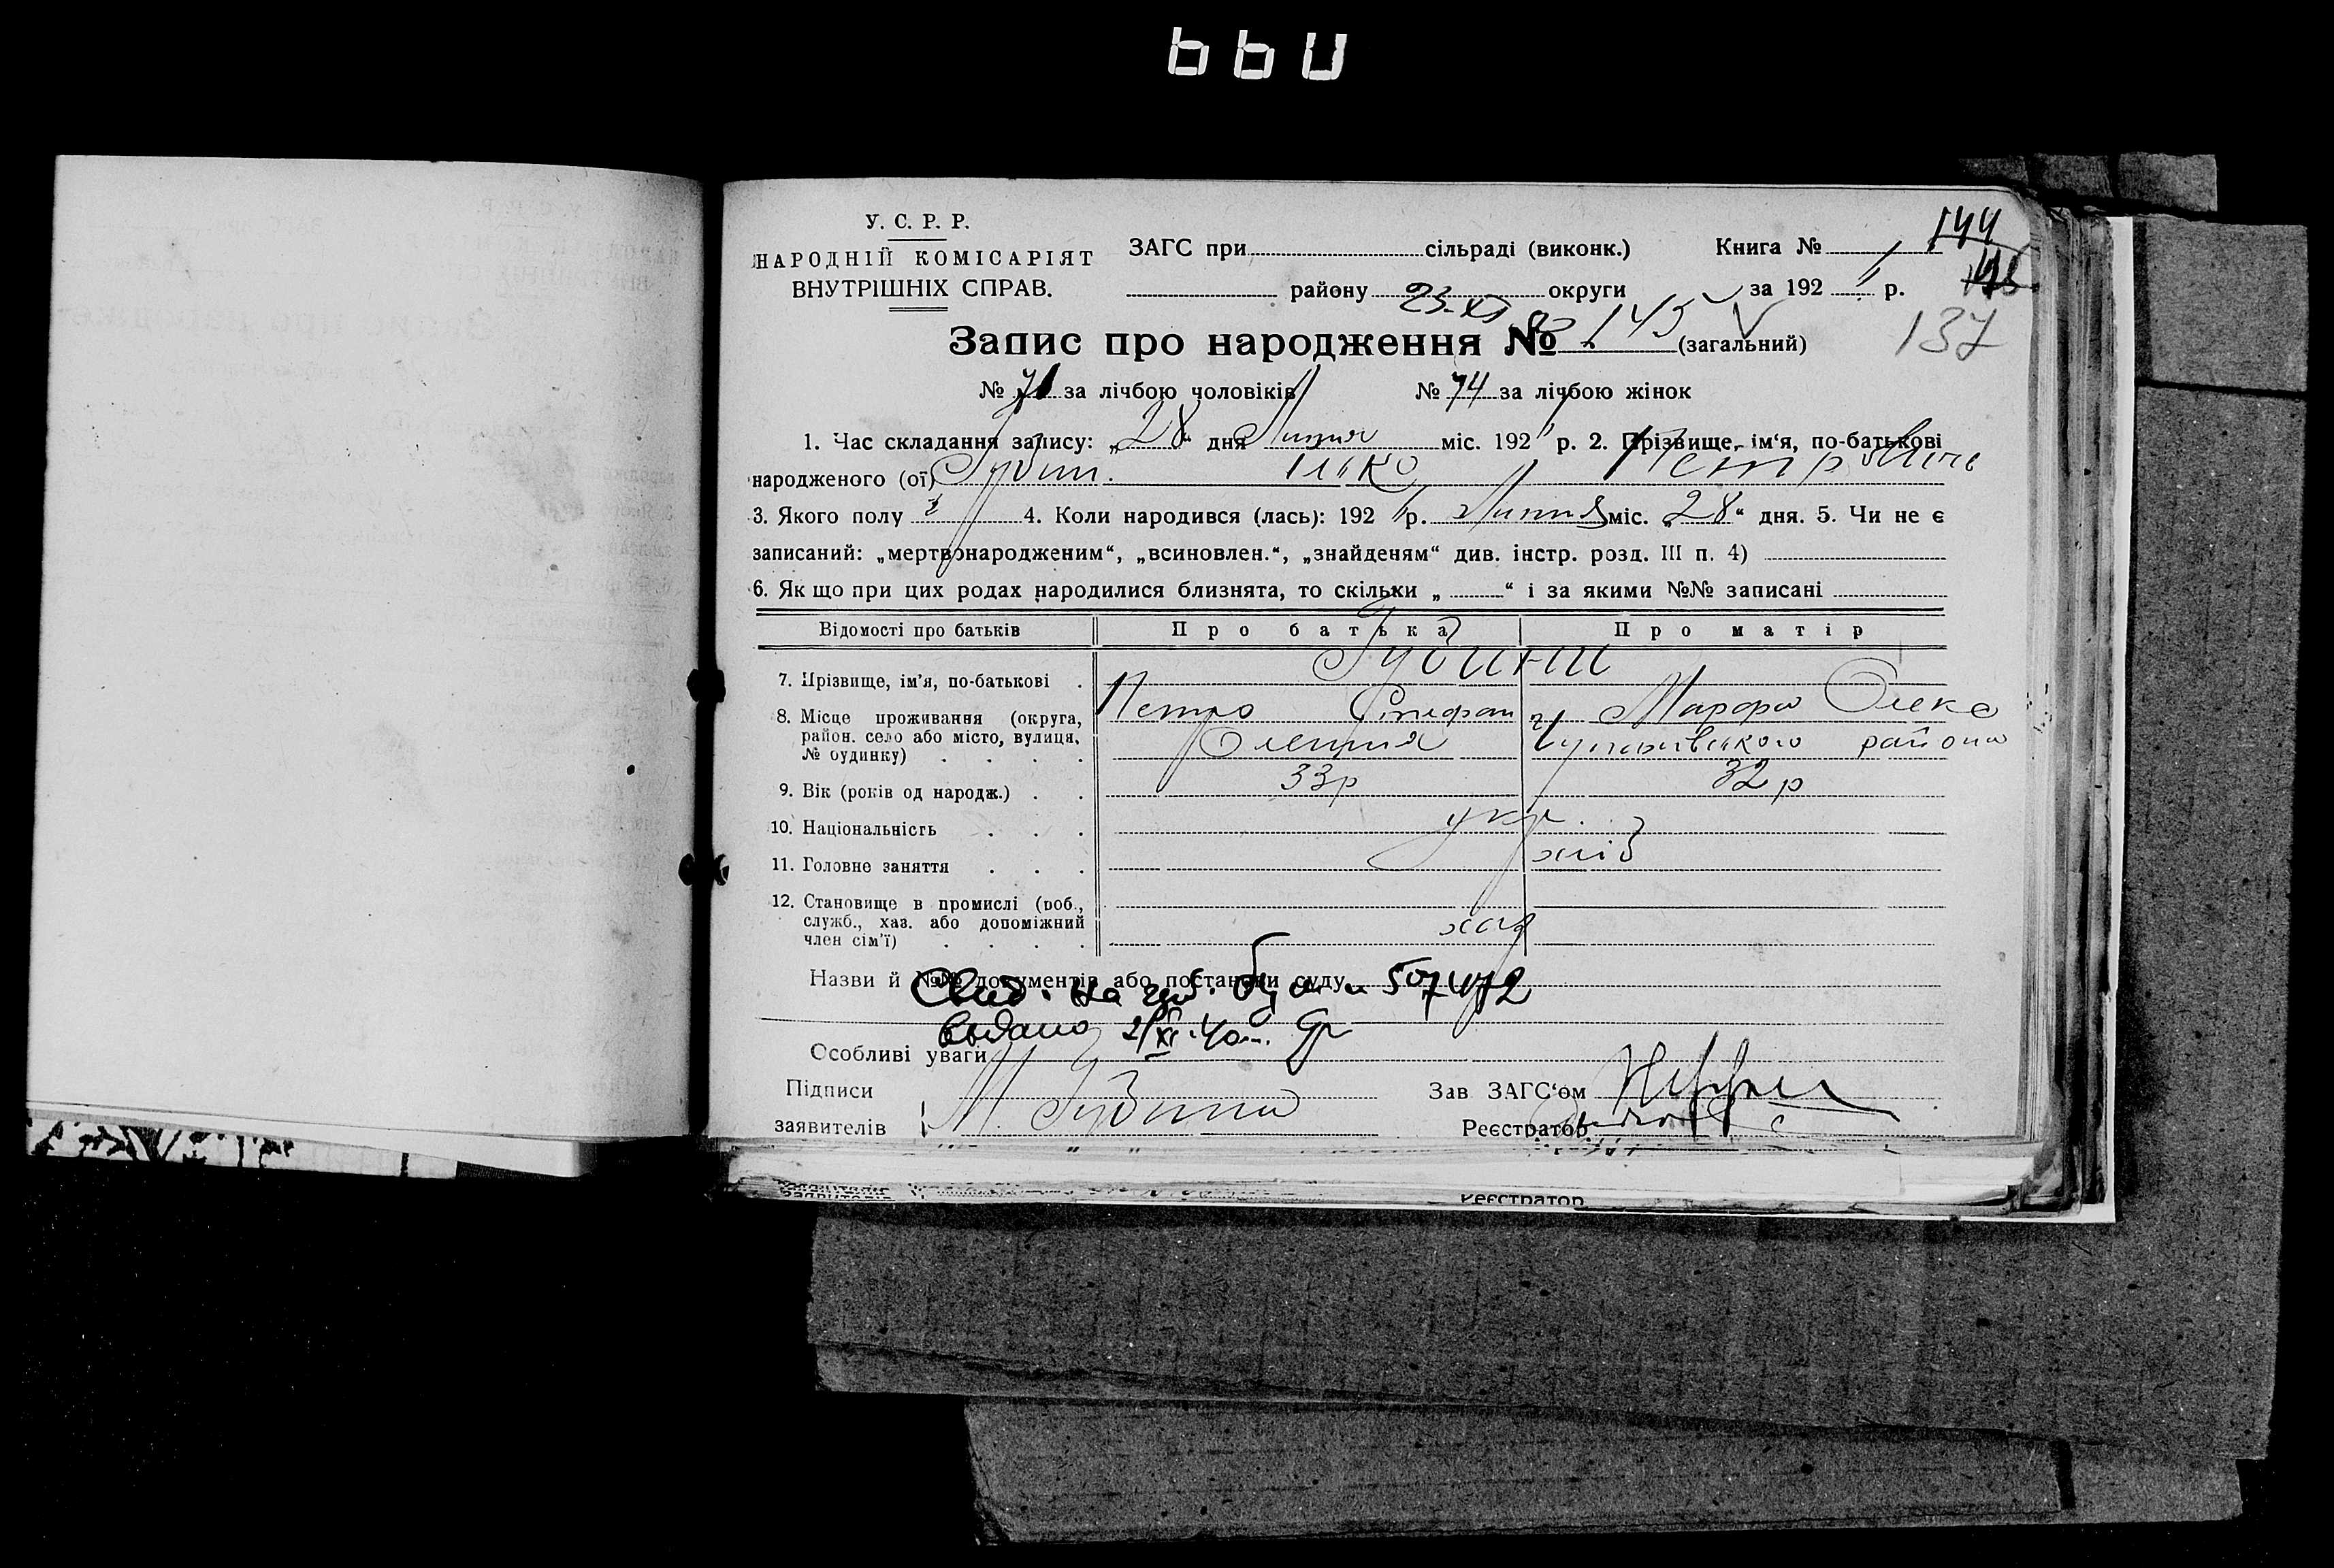 У. С. Р. Р.
НАРОДНІЙ КОМІСАРІЯТ
ВНУТРІШНІХ СПРАВ.
ЗАГС при сільраді (виконк.) Книга № 1 144
району округи за 192 р.
23-XI
137
Запис про народження № 145 (загальний)
№ 71 за лічбою чоловіків № 74 за лічбою жінок
1. Час складання запису: „28“ дня Липня міс. 192 р. 2. Прізвище, ім‘я, по-батькові
народженого (ої) Губин. Петрович
3. Якого полу ч 4. Коли народився (лась): 192 р. Липня міс. „28“ дня. 5. Чи не є
записаний: „мертвонародженим“, „всиновлен.“, „знайденям“ див. інстр. розд. III п. 4)
6. Як що при цих родах народилися близнята, то скільки „ “ і за якими №№ записані
Відомості про батьків Про батька Про матір
7. Прізвище, ім’я, по-батькові Губини
8. Місце проживання (округа, Петро Стефан Марфа Олекс
район. село або місто, вулиця, району
№ будинку)
9. Вік (років од народж.) 33р 32р
10. Національність укр.
11. Головне заняття хліб
12. Становище в промислі (роб.,
служб., хаз. або допоміжний хаз
член сім’ї)
Назви й №№ документів або постанови суду 507472
выдано 2/XI 40
Особливі уваги
Підписи Зав ЗАГС‘ом
заявителів М. Губина Реєстратор
Реєстратор